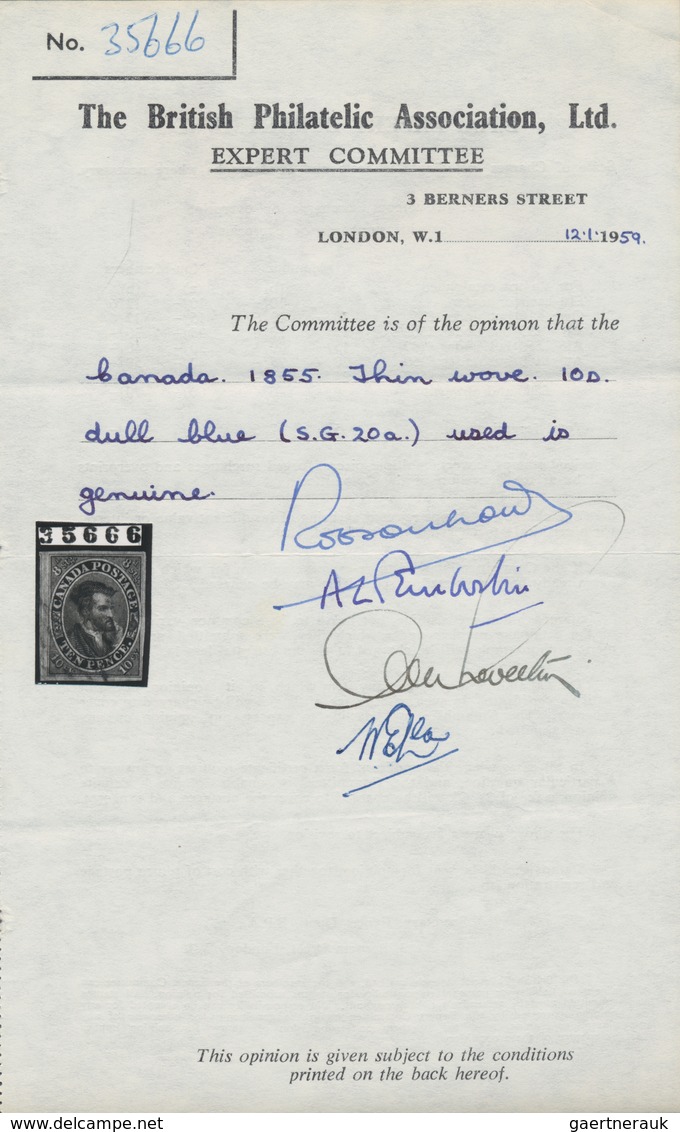 No. 35666
The British Philatelic Association, Ltd.
EXPERT COMMITTEE
3 BERNERS STREET
LONDON, W.1 12.1.1959.
The Committee is of the opinion that the
Canada. 1855. Thin wove. 10D.
dull blue (S.G.20a.) used is
genuine.
35666
CANADA POSTAGE
TEN PENCE.
10 10
This opinion is given subject to the conditions
printed on the back hereof.
delcampe.net
gaertnerauk